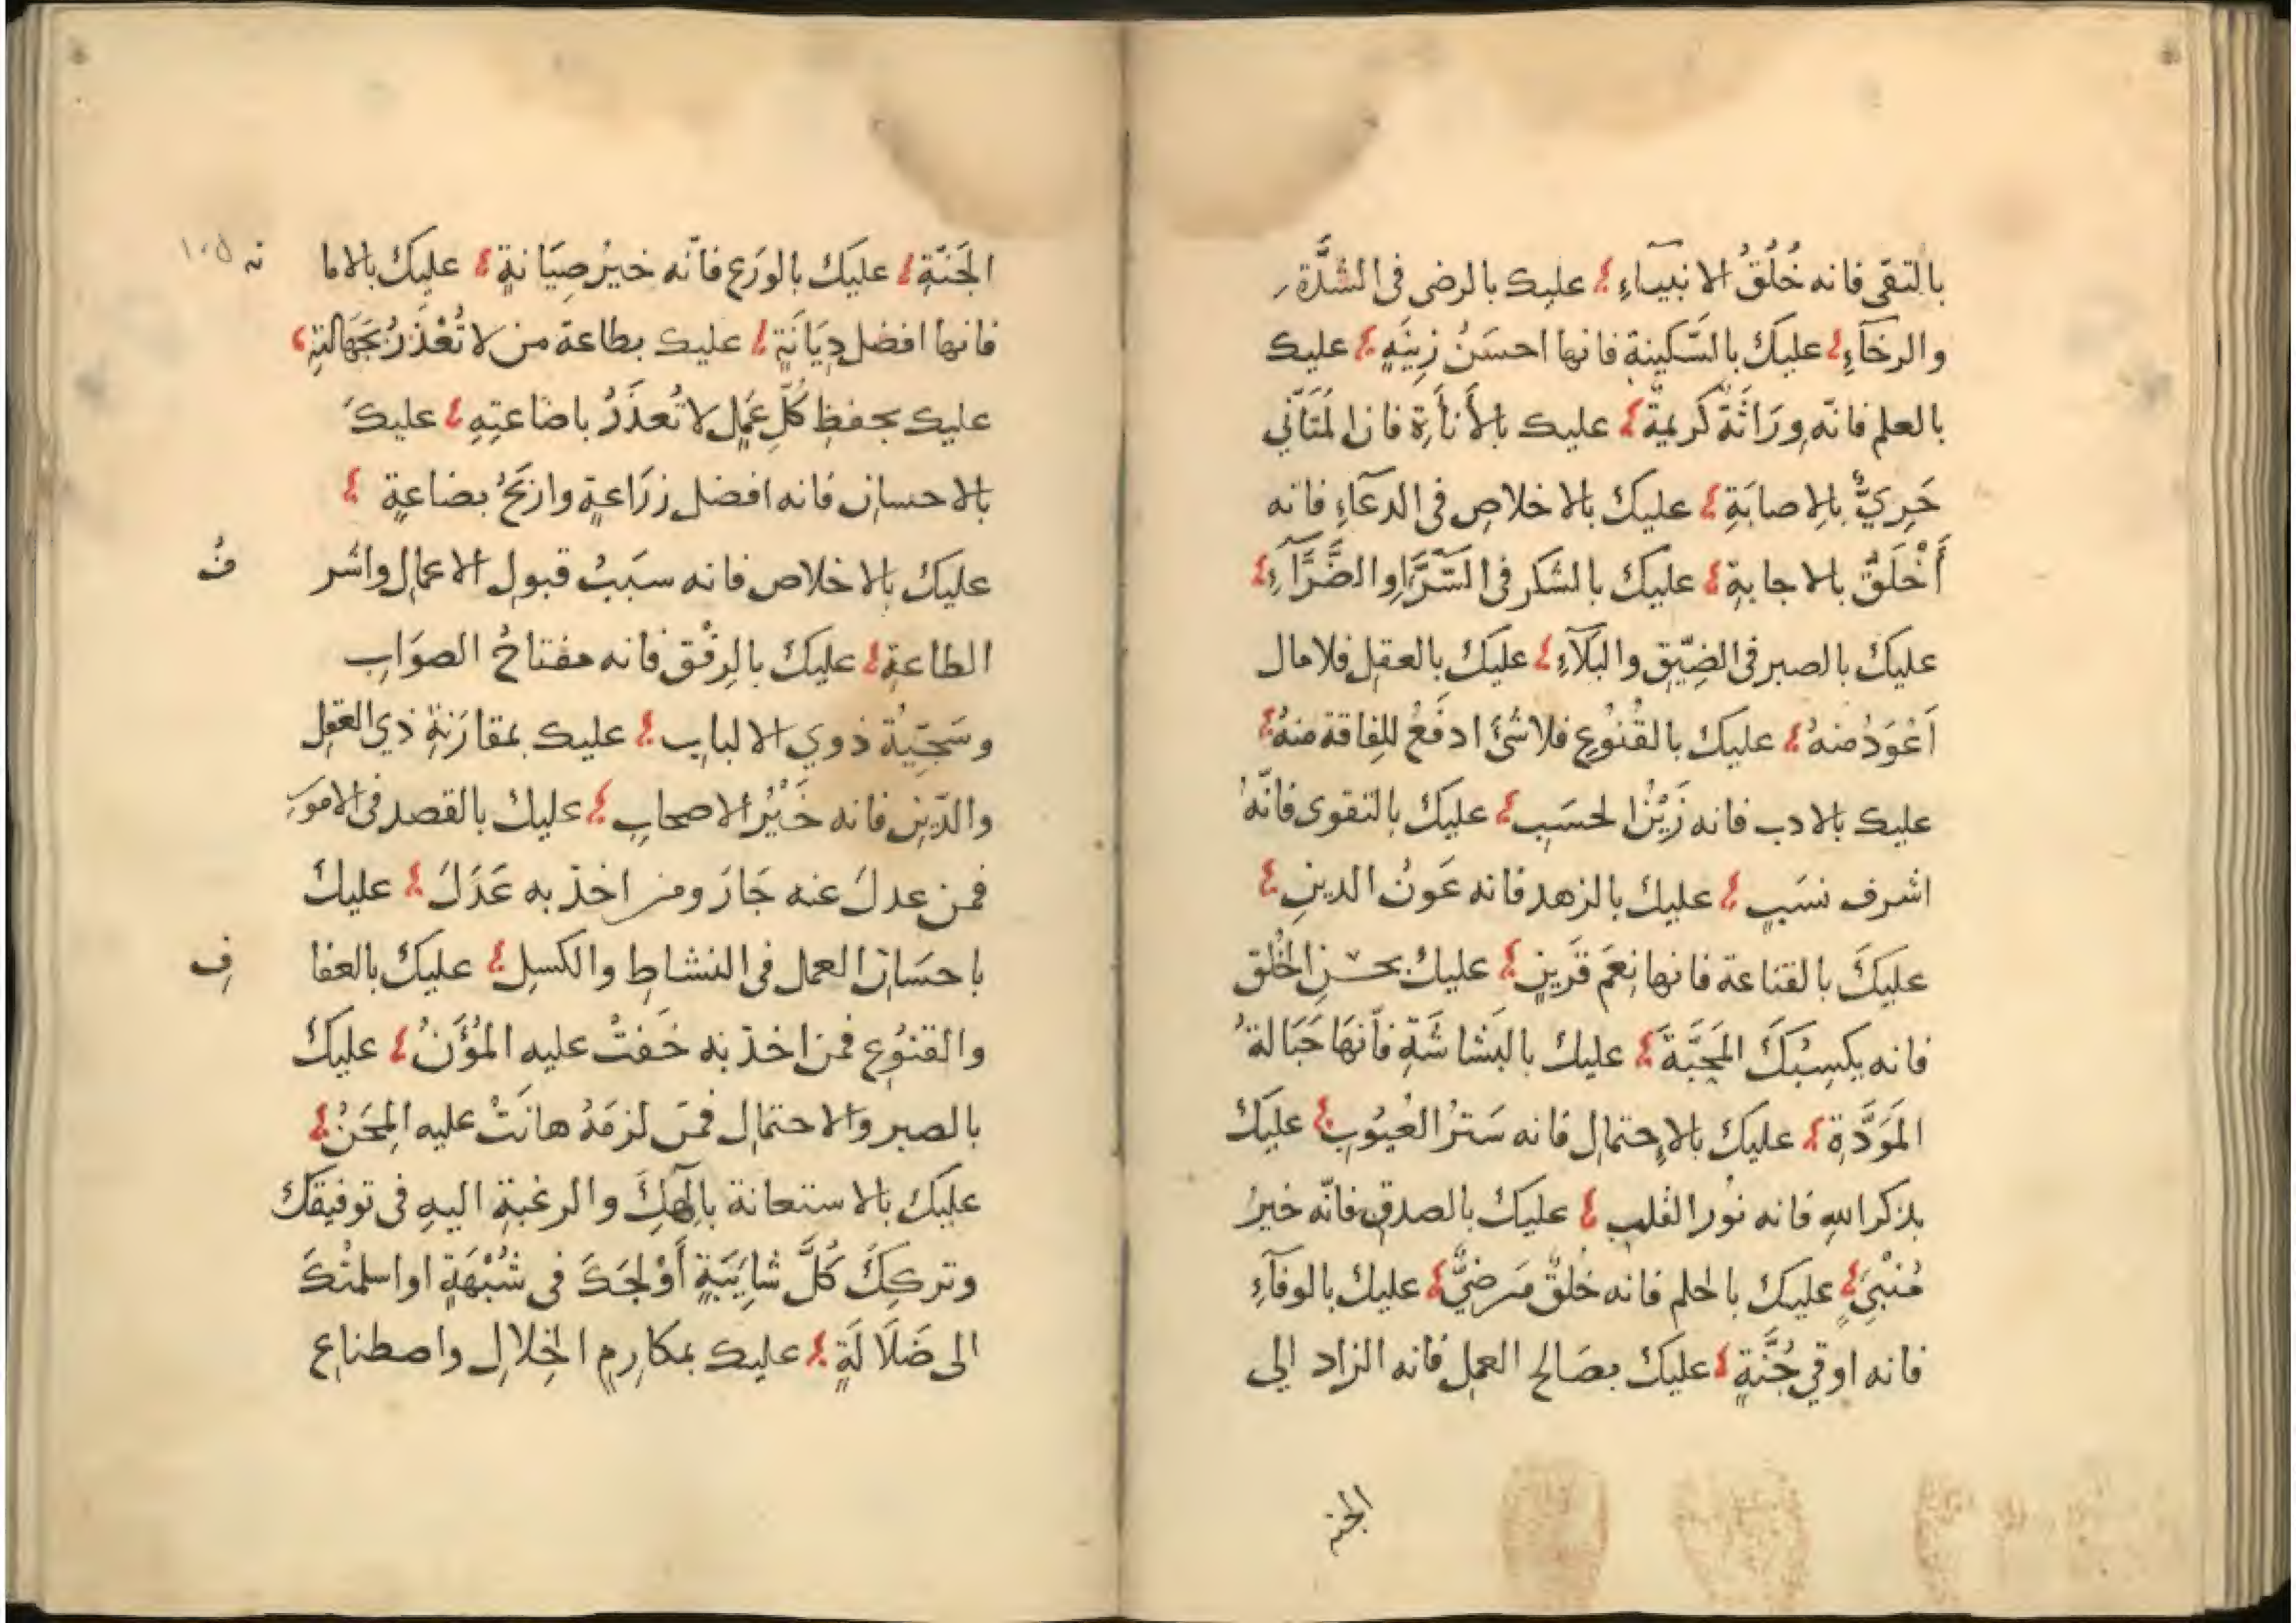 بالتقى فانه خُلُقُ الانبيآءِ عليك بالرضى فى الشدَّةِ
والرخآءِ عليكَ بالسَّكينةِ فانها احسَنُ زِينَهٍ عليك
بالعلم فانّه وِرَاثَةٌ كَريمةٌ عليك بالأنأَةِ فان المُتَأَنّي
حَرِيٌّ بالاِصابَةِ عليكَ بالاخلاصِ فى الدعآءِ فانه
أَخْلَقُ بالاجابةِ عليكَ بالشكر فى السَّرَّاءِ والضَّرَّآءِ
عليكَ بالصبر فى الضِيّقِ والبَلآءِ عليكَ بالعقلِ فلا مال
اَعْوَدُ منهُ عليكَ بالقُنُوُعِ فلا شئَ ادفَعُ للفاقة منهُ
عليك بالادب فانه زَيْنُ الحسَبِ عليكَ بالتقوى فانّهُ
اشرف نسَبٍ عليكَ بالزهد فانه عَونُ الدينِ
عليكَ بالقناعة فانها نِعمَ قَرينٍ عليكَ بحسنِ الخُلق
فانه يكسِبُكَ المَحَبَّةَ عليكَ بالبَشاشَةِ فأنهَا حَبَالةُ
المَوَدَّةِ عليكَ بالاِحتمالِ فانه سَترُ العُيوُبِ عليكَ
بذكر اللهِ فانه نوُر القلبِ عليكَ بالصدقِ فانّه خيرُ
مُنْبِئٍ عليكَ بالحلم فانه خُلقٌ مَرضِيٌّ عليكَ بالوفآءِ
فانه اوقي جُنَّةٍ عليكَ بصَالح العملِ فانه الزاد الي
الجنة
الجَنّةِ عليَكَ بالورَع فانّه خيرُ صِيَانةٍ عليكَ بالاما نه ١٠٥
فانها افضل دِيَانَةٍ عليك بطاعة من لا تُعْذَرُ بجَهَالتِهِ
عليك بحفظِ كُلِّ عَمَلٍ لا تُعذَرُ باضاعتِهِ عليكَ
بالاحسانِ فانه افضل زرَاعةٍ واربَحُ بضاعةٍ
عليكَ بالاخلاص فانه سبَبُ قبولِ الاعمالِ واشر فُ
الطاعةِ عليكَ بالرِفْق فانه مفتاحُ الصوَابِ
وسَجيّةُ ذوي الالبابِ عليك بمقارَنةِ ذي العقلِ
والدّينِ فانه خَيْرُ الاصحابِ عليك بالقصد فى الامور
فمن عدلَ عنه جَارَ ومن اخذ به عَدَلَ عليكَ
باحسَانِ العمل فى النشاطِ والكسلِ عليكَ بالعفا فِ
والقنوُعِ فمن اخذ به خَفتْ عليه المُؤَنُ عليكَ
بالصبر والاحتمالِ فمَن لزمَهُ هانَتْ عليه المِحَنُ
عليكَ بالاستعانة بالٓهِكَ والرغبةِ اليهِ فى توفيقكَ
وتركِكَ كُلَّ شايَبَةٍ أَوْلجَكَ فى شُبْهَةٍ او اسلمتْكَ
الى ضَلَالَةٍ عليك بمكارِمِ الخِلالِ واصطناعِ